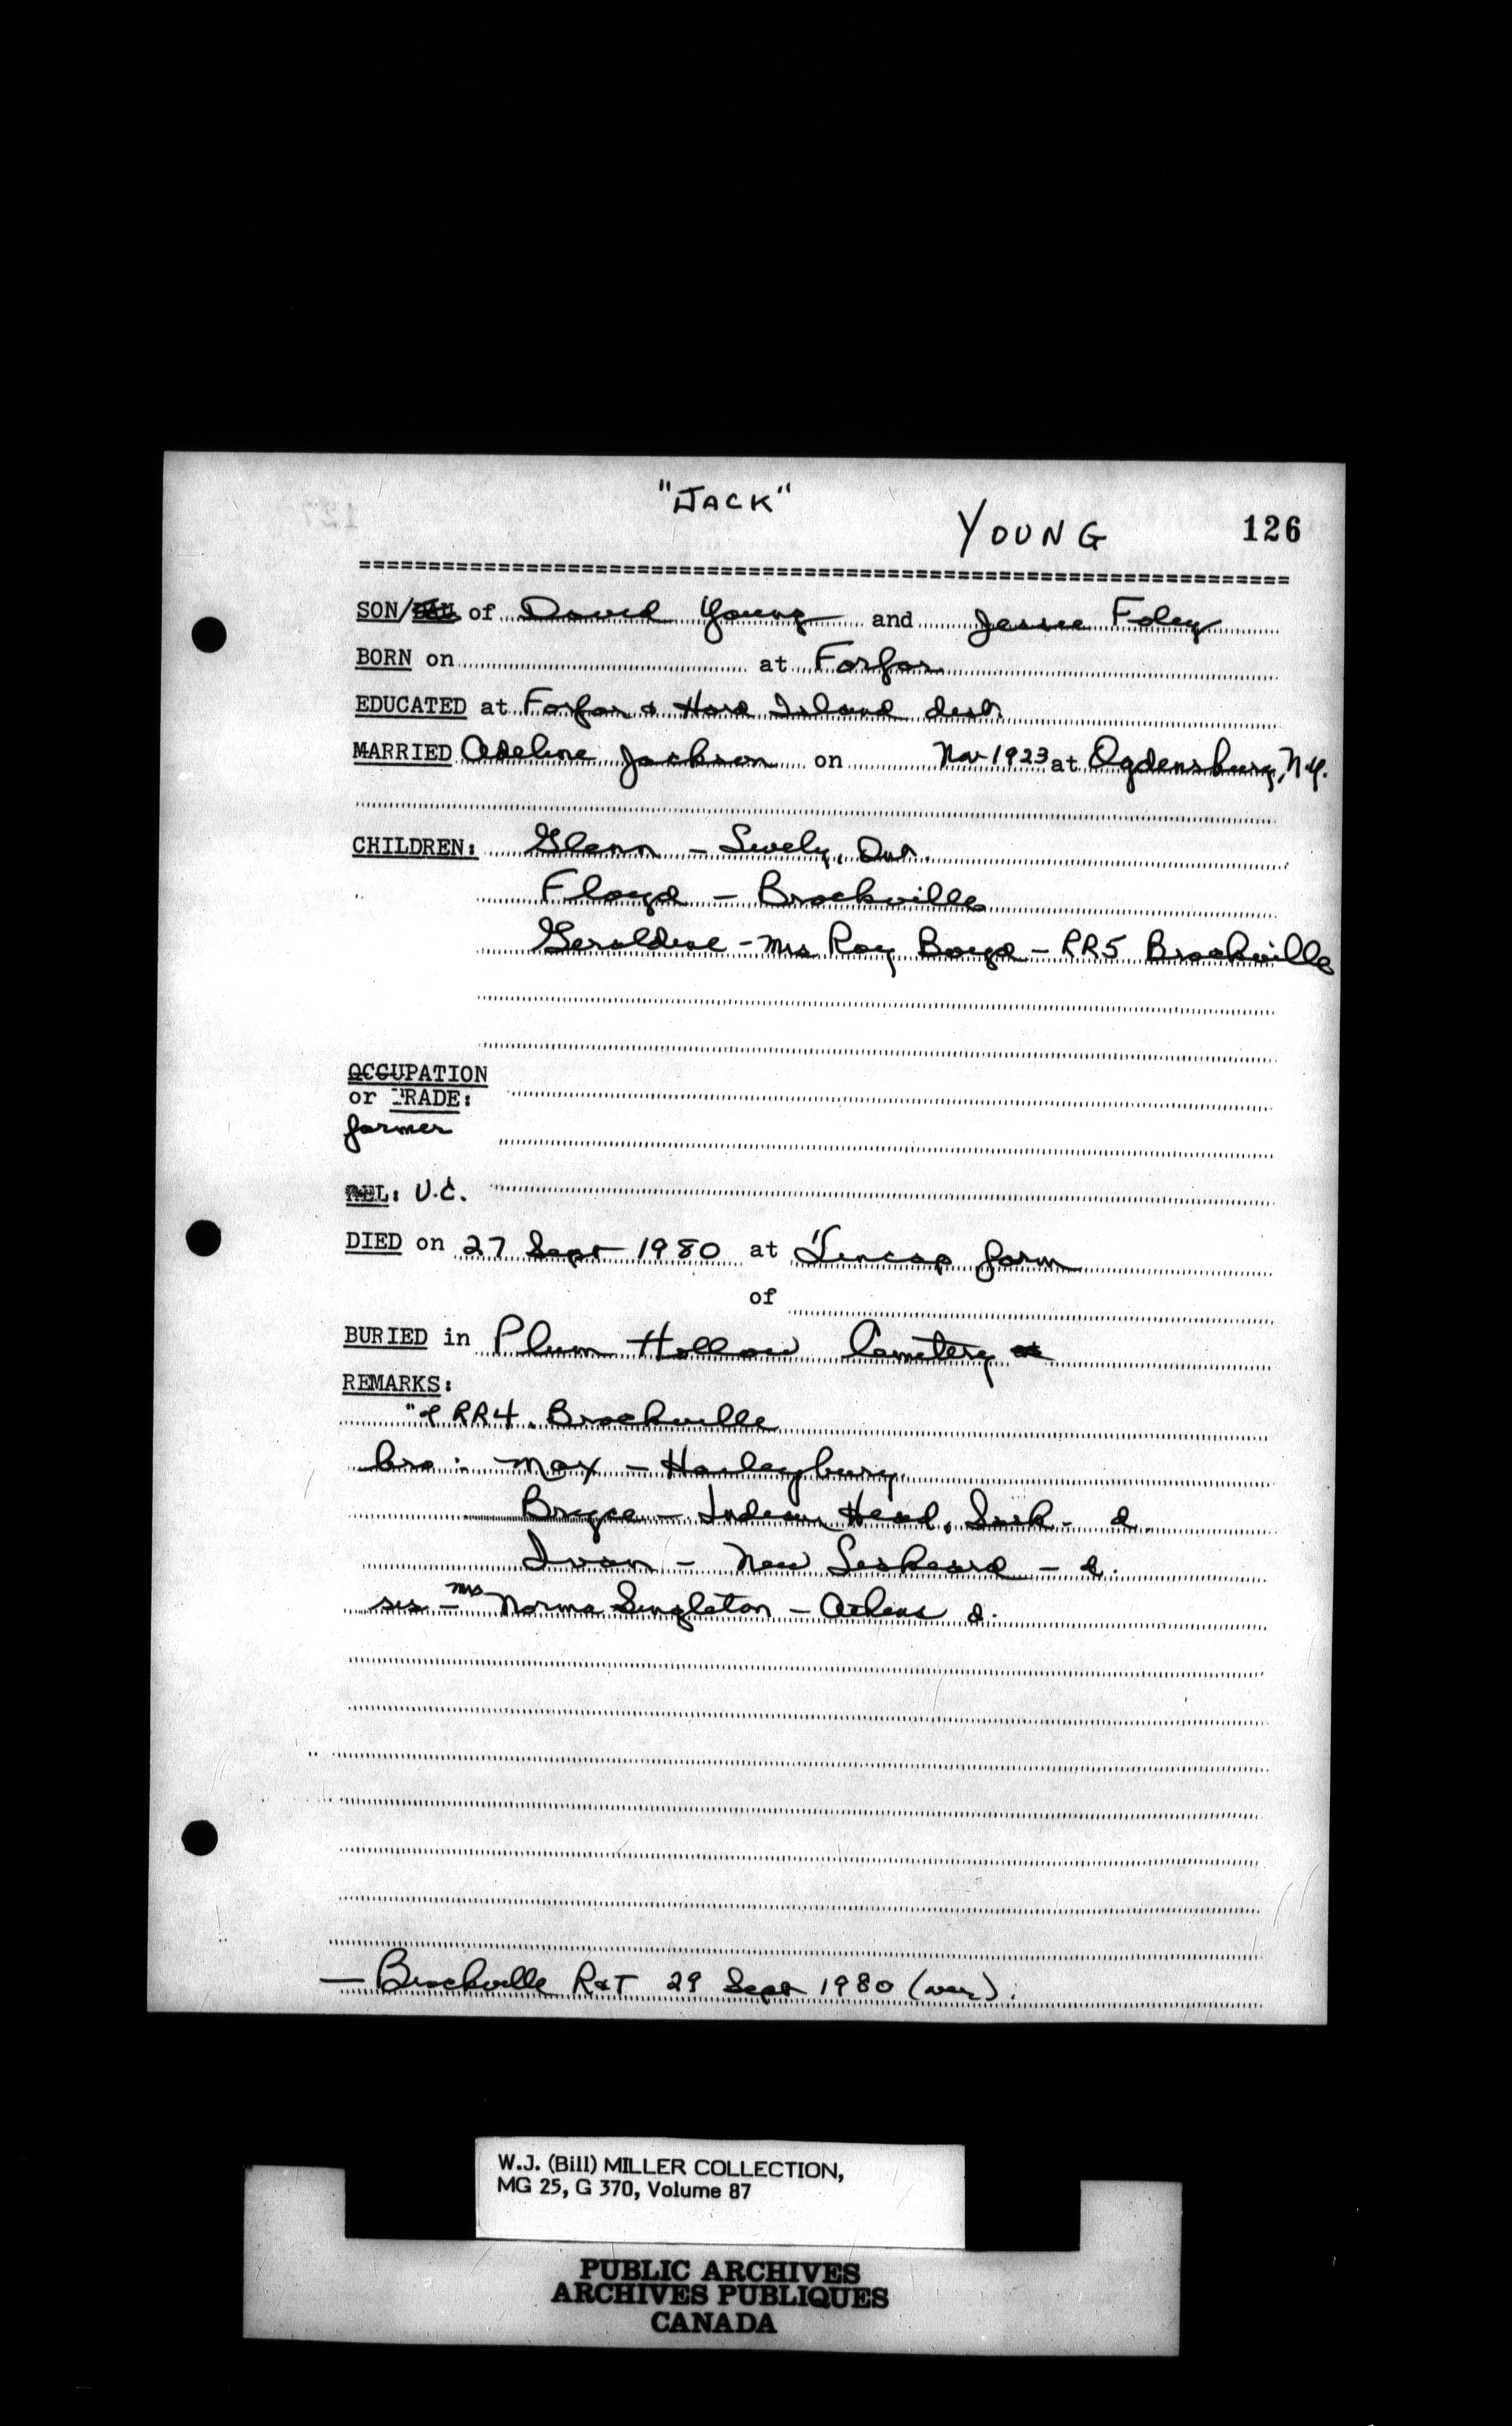 "JACK"
YOUNG 126
SON/DAU of David Young and Jessie Foley
BORN on at Forfar
EDUCATED at Forfar & Hard Island distr
MARRIED Adeline Jackson on Nov 1923 at Ogdensburg, N.Y.
CHILDREN: Glenn - Lively, Ont.
Floyd - Brockville
Geraldine - Mrs Roy Boyd - RR5 Brockville
OCCUPATION
or TRADE:
farmer
REL: U.C.
DIED on 27 Sept 1980 at farm
of
BURIED in Plum Hollow Cemetery at
REMARKS:
RR4. Brockville
bro: Max - Haileybury
Bryce - Indian Head, Sask - d.
Ivan - New Liskeard - d.
sis - Mrs Norma Singleton - Athens d.
- Brockville R&T 29 Sept 1980 (over).
W.J. (Bill) MILLER COLLECTION,
MG 25, G 370, Volume 87
PUBLIC ARCHIVES
ARCHIVES PUBLIQUES
CANADA